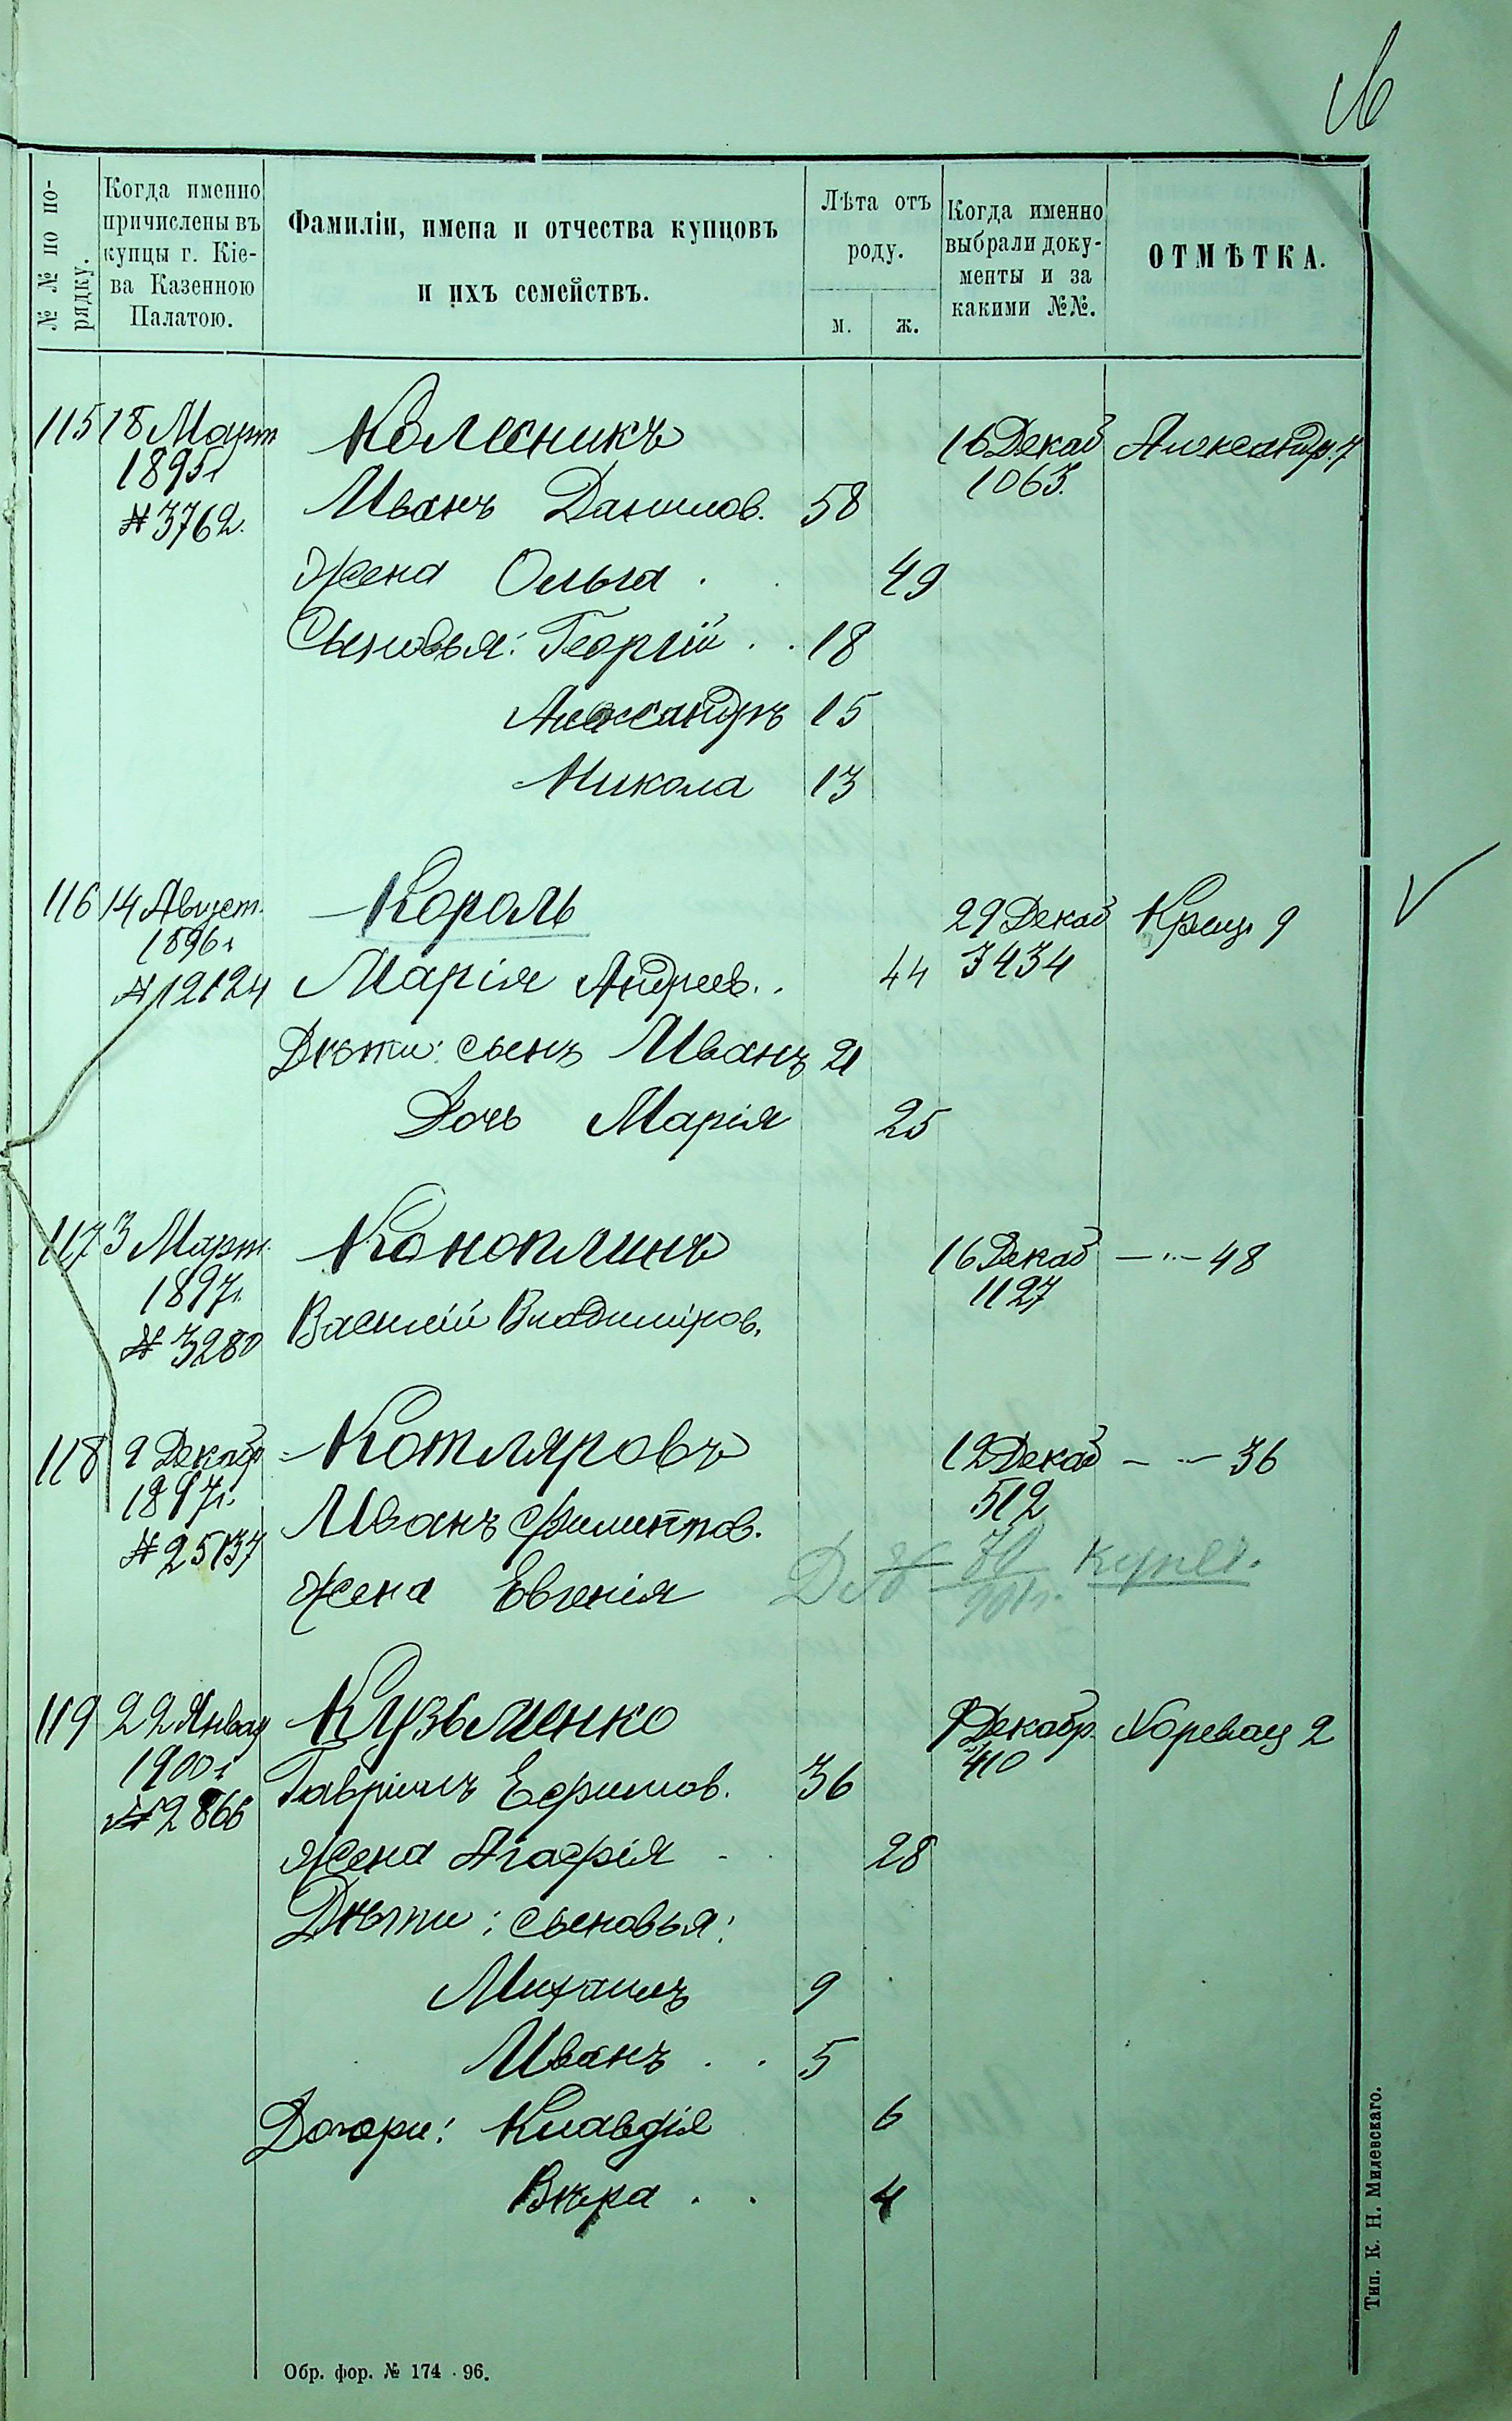 № № по по-
рядку.
Когда именно
причислены въ
купцы г. Кіе-
ва Казенною
Палатою.
Фамиліи, имена и отчества купцовъ
и ихъ семействъ.
Лѣта отъ
роду.
м. ж.
Когда именно
выбрали доку-
менты и за
какими №№.
ОТМѢТКА.
115 18 Март Колесникъ 16 Декаб Александр. 7
1895 г 1063.
№ 3762. Иванъ Данилов. 58
Жена Ольга . 49
Сыновья: Георгій . . 18
Александръ 15
Никола 13
116 14 Август. Король 29 Декаб Крещ. 9
1896 г 3434
№ 12124 Марія Андреев. . 44
Дѣти: сынъ Иванъ 21
Дочь Марія 25
117 3 Март. Коноплинъ 16 Декаб — „ — 48
1897 г. 1127
№ 3280 Василій Владиміров.
118 9 Декабр Котляровъ 12 Декаб — „ — 36
1897 г. 512
№ 25137 Иванъ Филиппов.
Жена Евгенія
купеч.
119 22 Январ Кузьменко 9 Декабр. Хоревая 2
1900 г № 410
№ 2866 Гавріилъ Ефимов. 36
Жена Агафія - 28
Дѣти: сыновья:
Михаилъ 9
Иванъ . . 5
Дочери: Клавдія 6
Вѣра . . 4
Обр. фор. № 174 - 96.
Тип. К. Н. Милевскаго.